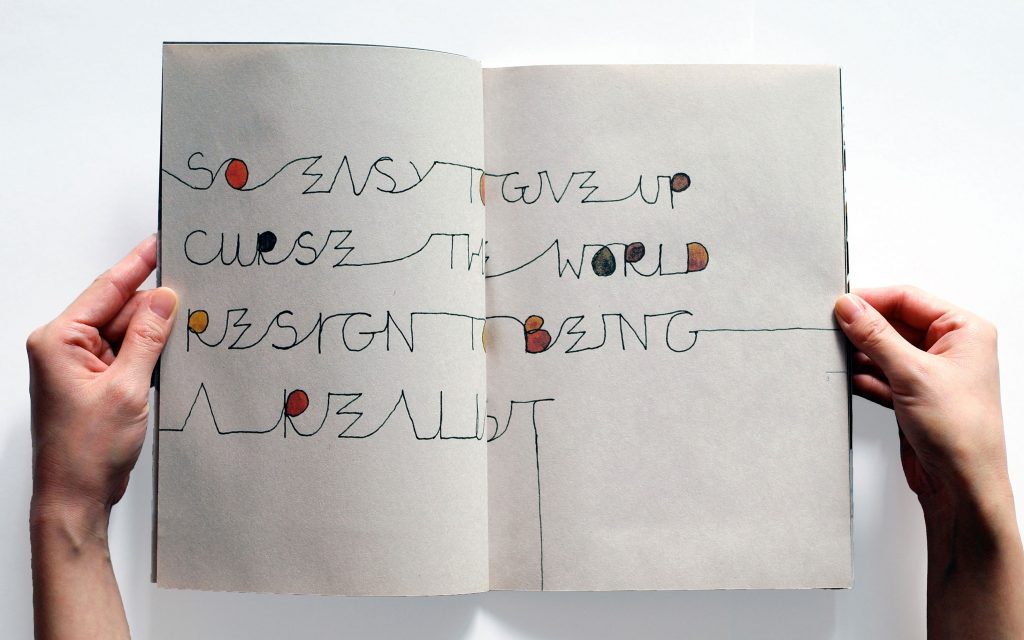 SO EASY TO GIVE UP
CURSE THE WORLD
RESIGN TO BEING
A REALIST